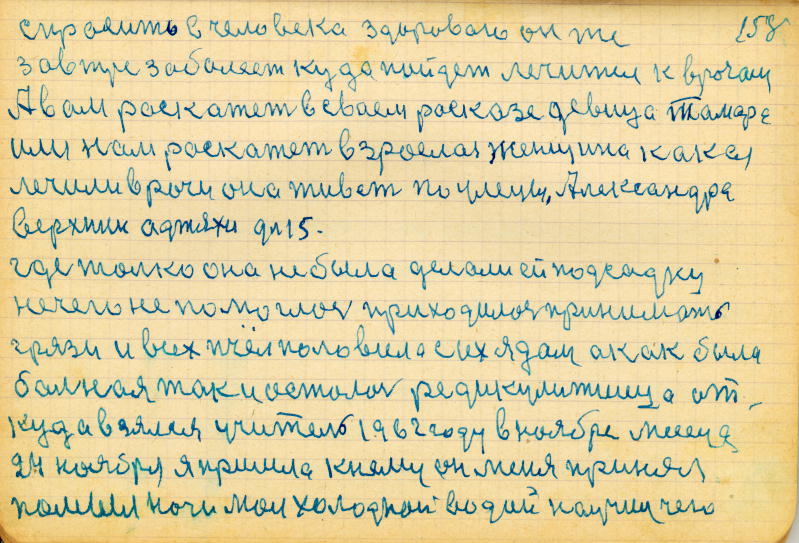 спросить в человека здорового он же 158
завтре заболеет куда пойдет лечится к врочам
А вам роскажет в сваем росказе девица Тамаре
или нам роскажет взрослая женщина как ея
лечили врочи она живет по улецы, Александра
верхник аджяхи дп 15.
где толко она небыла делоли ей подсадку
нечего не помоглоя приходилоя принимать
грязи и всех пчёл половила с их ядом а как была
болная так и осталоя редикулитница от-
куда взялся учитель 1962 году в ноябре месеце
24 ноября я пришла к нему он меня принял
помыл ноги мои холодной водой научил чего